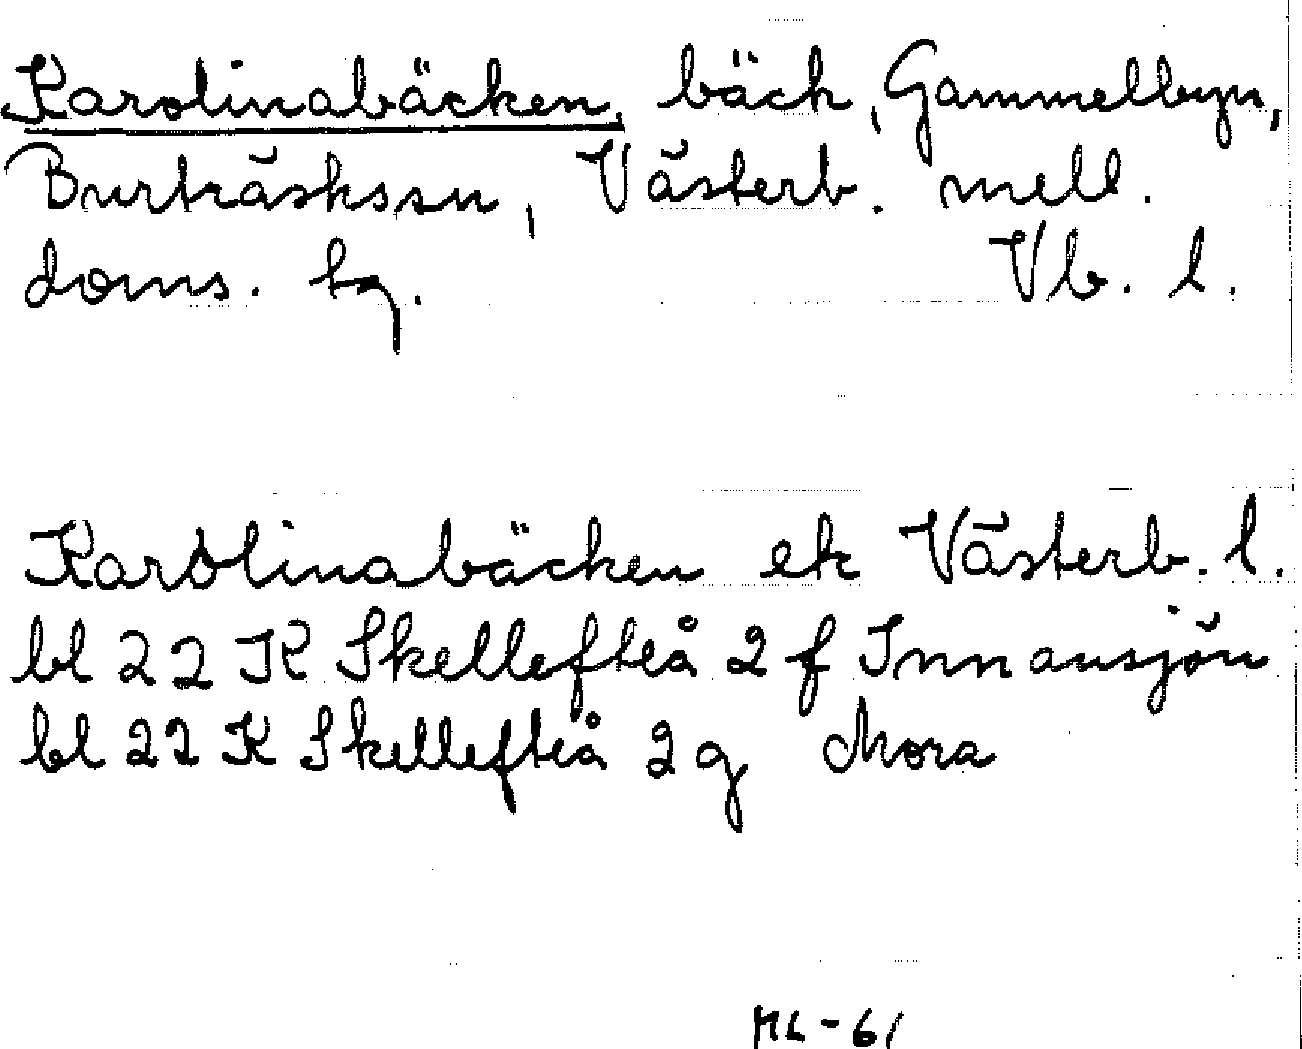 Karolinabäcken, bäck, Gammelbyn,
Burträskssn, Västerb. mell.
doms. hg. Vb. l.
Karolinabäcken ek Västerb. l.
bl 22 K Skellefteå 2 f Innansjön
bl 22 K Skellefteå 2 g Mora
ML-61